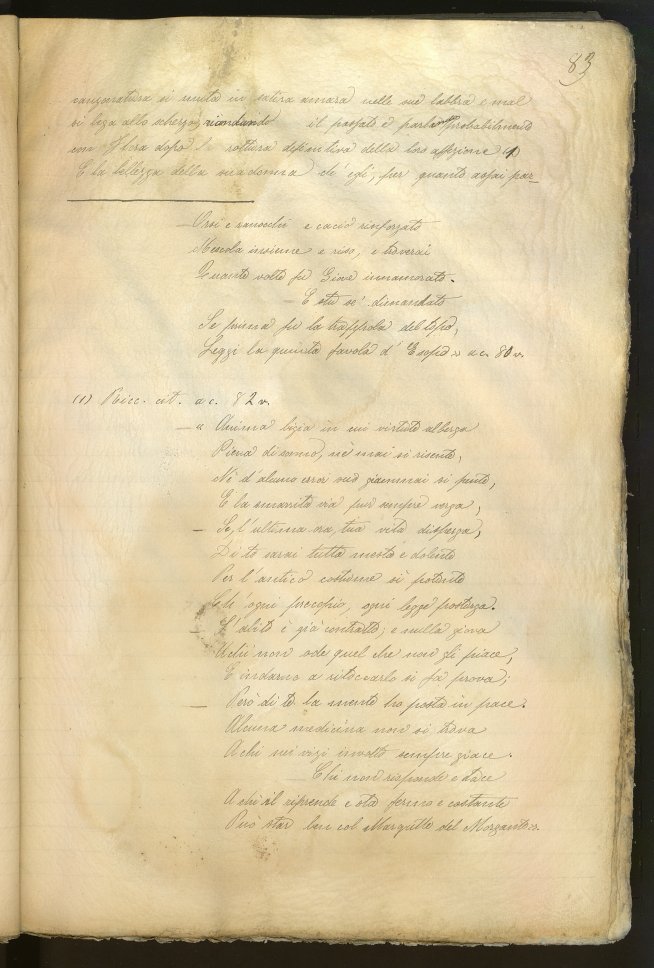 83
si muta in satira amara nelle sue labbra e mal
si lega allo scherzo, ricordando il passato e parla probabilmente
con Flora dopo la rottura definitiva della loro affezione (1)
E la bellezza della sua donna ch'egli, per quanto assai par-
— Orsi e ranocchi e cacio rinforzato
Mescola insieme e riso, e troverai
Quante volte fu Giove innamorato.
— E stu se' dimandato
Se prima fu la trappola del topo,
Leggi la quinta favola d'Esopo » a c. 80 v.
(1) Ricc. cit. a c. 82 v.
— « Anima bizia in cui virtute alberga
Piena di sonno, nè mai si risente,
Nè d'alcuno error suo giammai si pente,
E la smarrita via pur sempre verga,
— Se l'ultima ora, tua vita disperga,
Di te sarai tutta mesta e dolente
Per l'antico costume sì potente
Ch'ogni precepio, ogni legge posterga.
— L'abito è già contratto; e nulla giova
A chi non ode quel che non gli piace,
E indarno a ritoccarlo si fa prova;
— Però di te la mente ho posta in pace.
Alcuna medicina non si trova
A chi nei vizi involto sempre giace.
— Chi non risponde e tace
A chi il riprende e sta fermo e costante
Può star ben col Margutte del Morgante ».